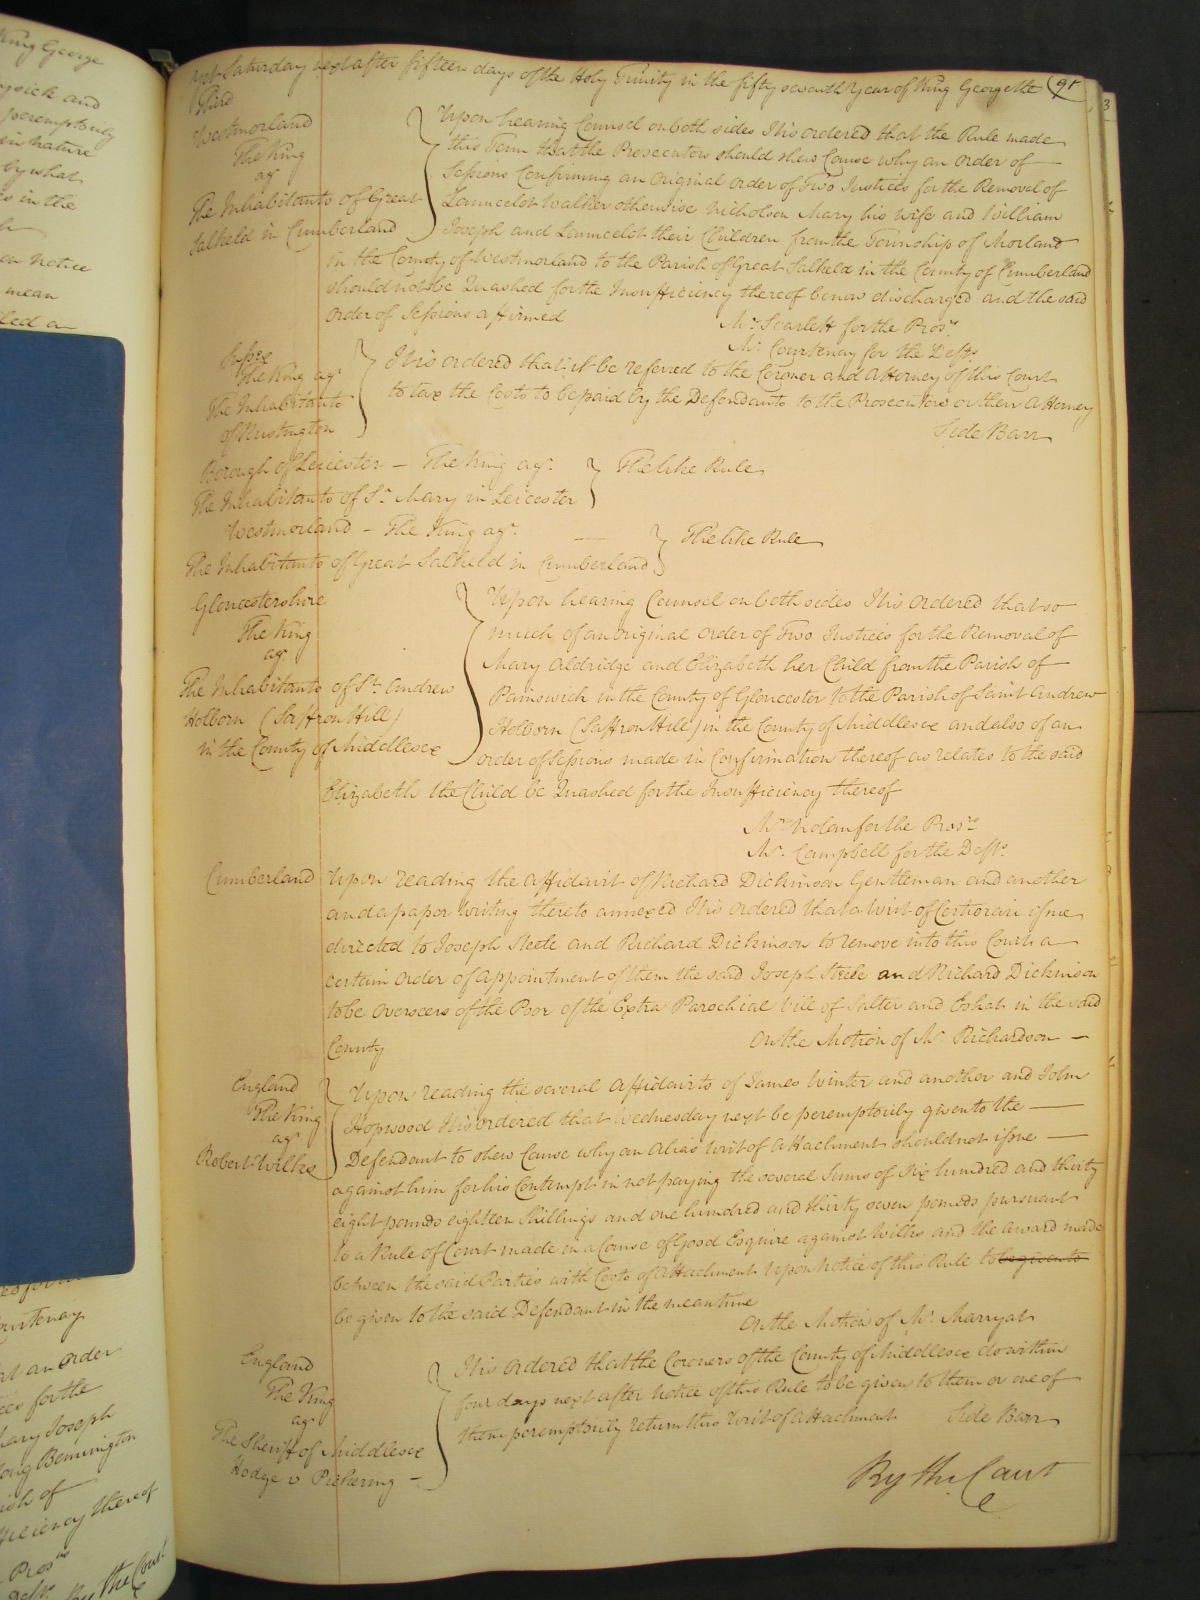 King George
ysick and
peremptorily
in nature
by what
es in the
en notice
mean
led a
yet Saturday next after fifteen days of the Holy Trinity in the fifty seventh Year of King George the 91
Third
Westmorland
The King
agt
The Inhabitants of Great
Salkeld in Cumberland
Upon hearing Counsel on both sides It is ordered that the Rule made
this Term that the Prosecutors should shew Cause why an order of
Sessions Confirming an Original order of Two Justices for the Removal of
Launcelot Walker otherwise Nicholson Mary his wife and William
Joseph and Launcelot their Children from the Township of Morland
in the County of Westmorland to the Parish of Great Salkeld in the County of Cumberland
should not be Quashed for the Insufficiency thereof be now discharged and the said
order of Sessions affirmed
Mr. Scarlett for the Prosr.
Mr. Courtenay for the Defts.
Sussex
The King agt
The Inhabitants
of Rustington
It is ordered that it be referred to the Coroner and Attorney of this Court
to tax the Costs to be paid by the Defendants to the Prosecutors or their Attorney
Side Barr
Borough of Leicester - The King agt.
The Inhabitants of St. Mary in Leicester
The like Rule
Westmorland - The King agt.
The Inhabitants of Great Salkeld in Cumberland
The like Rule
Gloucestershire
The King
agt.
The Inhabitants of St. Andrew
Holborn (Saffron Hill)
in the County of Middlesex
Upon hearing Counsel on both sides It is ordered that so
much of an original order of Two Justices for the Removal of
Mary Aldridge and Elizabeth her Child from the Parish of
Painswick in the County of Gloucester to the Parish of Saint Andrew
Holborn (Saffron Hill) in the County of Middlesex and also of an
order of Sessions made in Confirmation thereof as relates to the said
Elizabeth the Child be Quashed for the Insufficiency thereof
Mr. Nolan for the Prosrs.
Mr. Campbell for the Defts.
Cumberland
Upon reading the Affidavit of Richard Dickinson Gentleman and another
and a paper writing thereto annexed It is ordered that a Writ of Certiorari issue
directed to Joseph Steele and Richard Dickinson to remove into this Court a
certain order of appointment of them the said Joseph Steele and Richard Dickinson
to be overseers of the Poor of the Extra Parochial Vill of Salter and Eskat in the said
County
On the Motion of Mr. Richardson
England
The King
agt
Robert Wilks
Upon reading the several Affidavits of James Winter and another and John
Hopwood It is ordered that Wednesday next be peremptorily given to the
Defendant to shew Cause why an Alias Writ of Attachment should not issue
against him for his Contempt in not paying the several Sums of Six hundred and thirty
eight pounds eighteen shillings and one hundred and thirty seven pounds pursuant
to a Rule of Court made in a Cause of Good Esquire against Wilks and the award made
between the said Parties with Costs of Attachment Upon notice of this Rule to be given to
be given to the said Defendant in the meantime
On the Motion of Mr. Marryat
England
The King
agt
The Sheriff of Middlesex
Hodge v Pickering
It is ordered that the Coroners of the County of Middlesex do within
four days next after notice of this Rule to be given to them or one of
them peremptorily return this Writ of Attachment
Side Barr
By the Court
urtenay
at an order
ces for the
Mary Joseph
Long Bennington
ish of
fficiency thereof
Prosrs
Defts.
By the Court